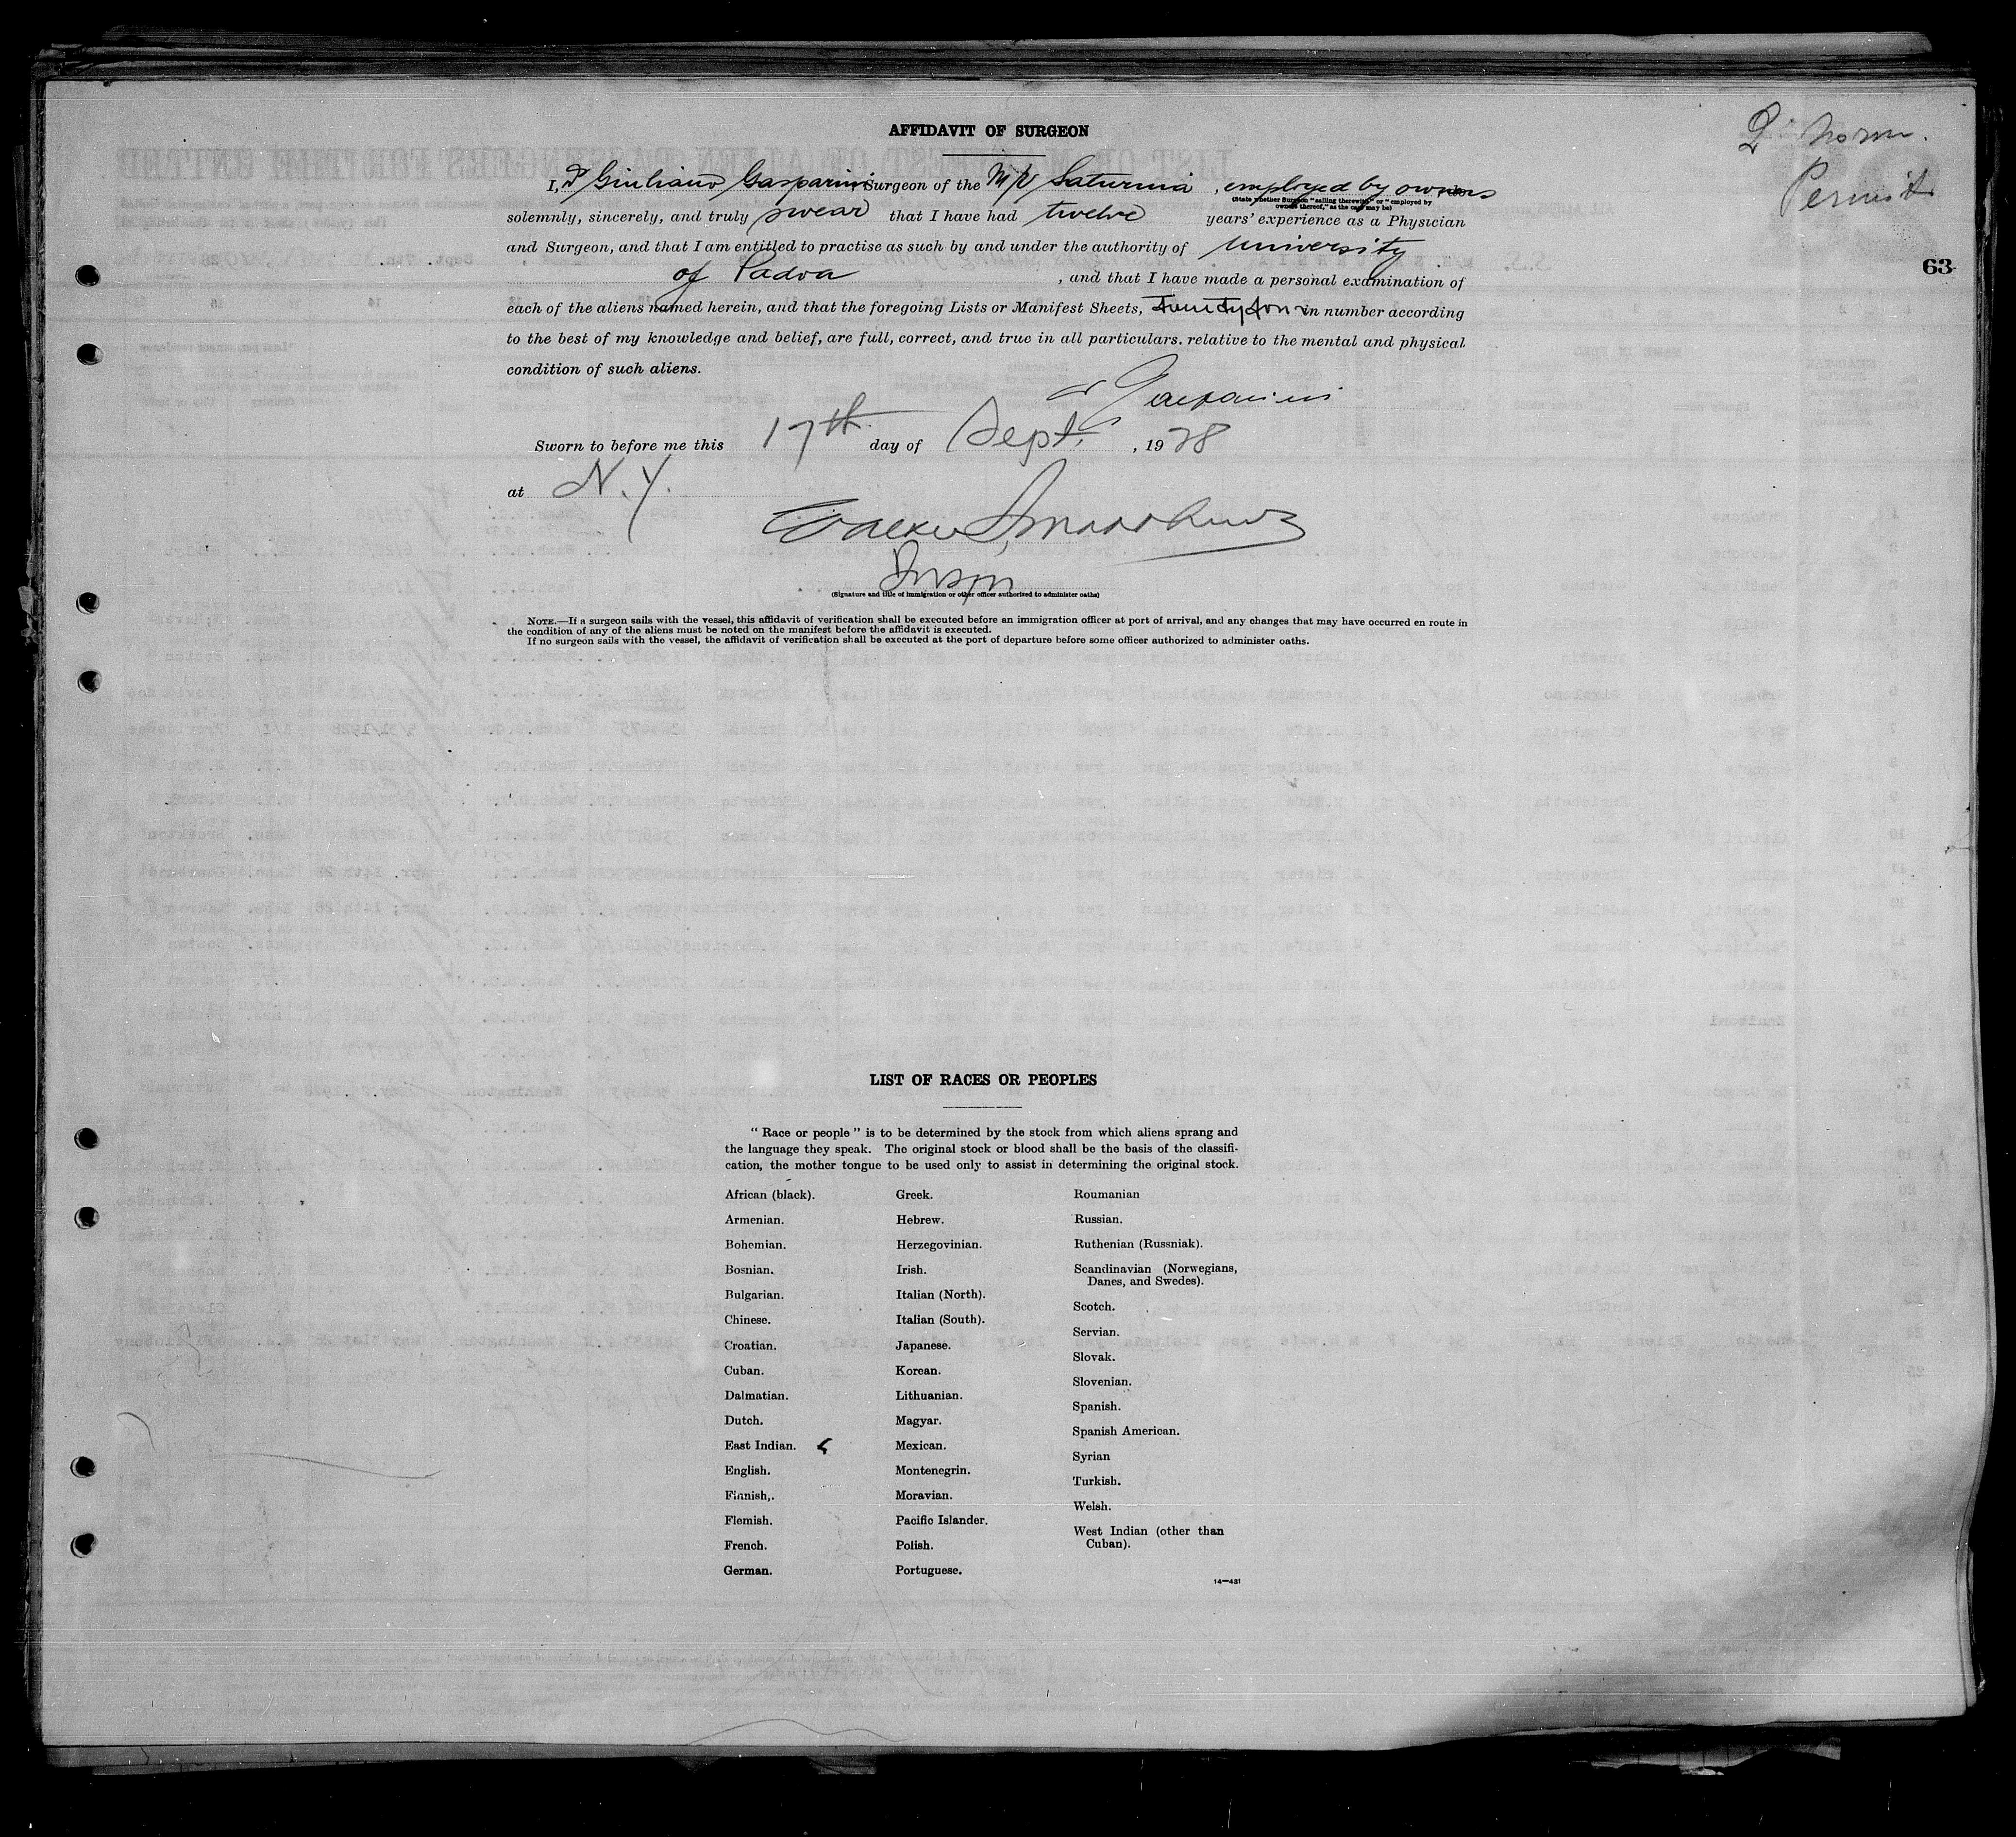 AFFIDAVIT OF SURGEON
Permit
63
I, Dr Giuliano Gasparini Surgeon of the M/V Saturnia, employed by owners
(State whether Surgeon "sailing therewith" or "employed by
owners thereof," as the case may be)
solemnly, sincerely, and truly swear that I have had twelve years' experience as a Physician
and Surgeon, and that I am entitled to practise as such by and under the authority of University
of Padva, and that I have made a personal examination of
each of the aliens named herein, and that the foregoing Lists or Manifest Sheets, in number according
to the best of my knowledge and belief, are full, correct, and true in all particulars. relative to the mental and physical
condition of such aliens.
Gasparini
Sworn to before me this 17th day of Sept., 1928
at N.Y.
Insp
(Signature and title of immigration or other officer authorized to administer oaths)
NOTE.—If a surgeon sails with the vessel, this affidavit of verification shall be executed before an immigration officer at port of arrival, and any changes that may have occurred en route in
the condition of any of the aliens must be noted on the manifest before the affidavit is executed.
If no surgeon sails with the vessel, the affidavit of verification shall be executed at the port of departure before some officer authorized to administer oaths.
LIST OF RACES OR PEOPLES
"Race or people" is to be determined by the stock from which aliens sprang and
the language they speak. The original stock or blood shall be the basis of the classifi-
cation, the mother tongue to be used only to assist in determining the original stock.
African (black).
Armenian.
Bohemian.
Bosnian.
Bulgarian.
Chinese.
Croatian.
Cuban.
Dalmatian.
Dutch.
East Indian.
English.
Finnish,.
Flemish.
French.
German.
Greek.
Hebrew.
Herzegovinian.
Irish.
Italian (North).
Italian (South).
Japanese.
Korean.
Lithuanian.
Magyar.
Mexican.
Montenegrin.
Moravian.
Pacific Islander.
Polish.
Portuguese.
Roumanian
Russian.
Ruthenian (Russniak).
Scandinavian (Norwegians,
Danes, and Swedes).
Scotch.
Servian.
Slovak.
Slovenian.
Spanish.
Spanish American.
Syrian
Turkish.
Welsh.
West Indian (other than
Cuban).
14—431